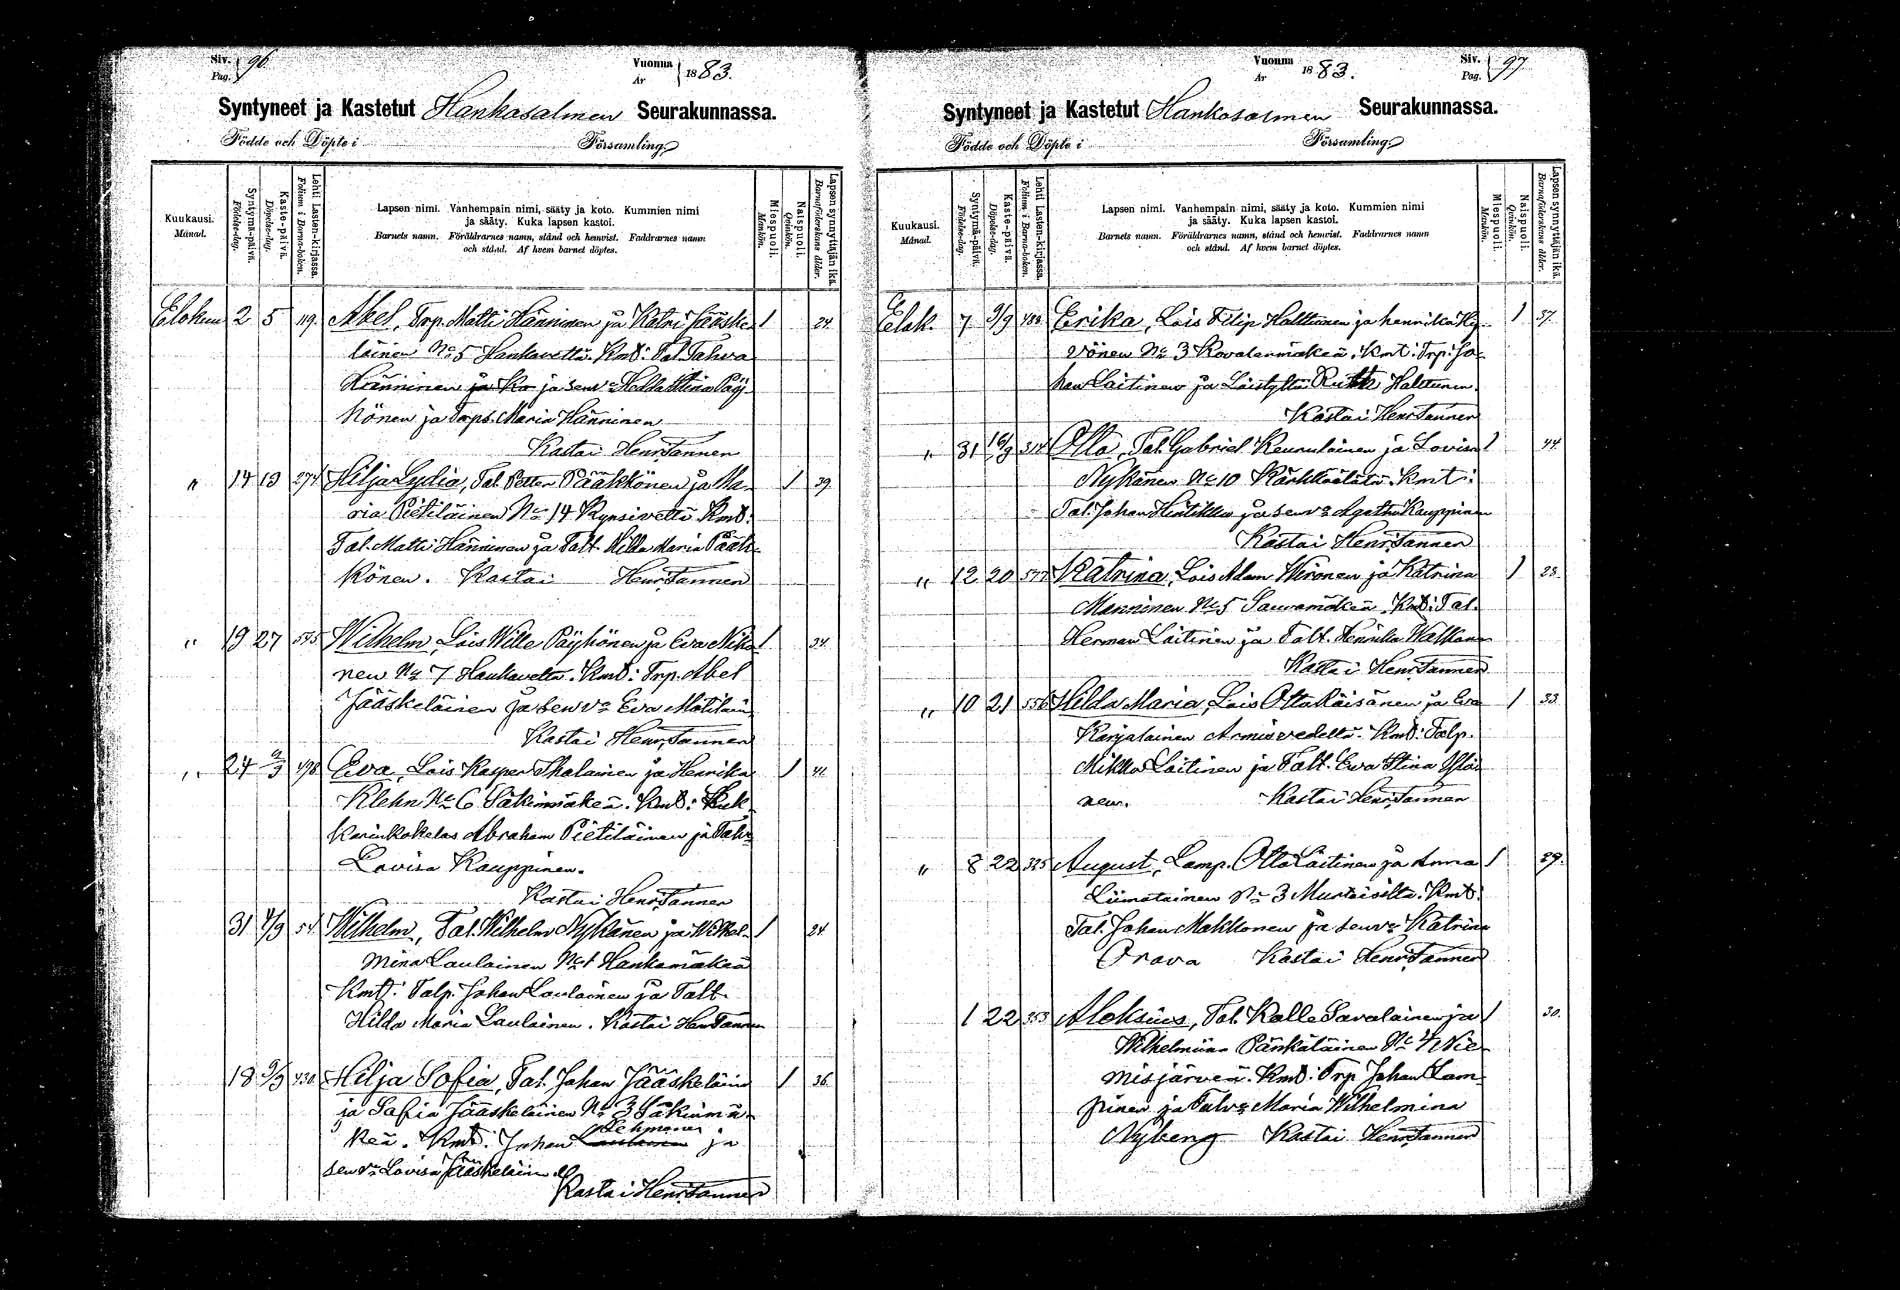 Siv. Pag. 96.
Vuonna År 1883.
Syntyneet ja Kastetut Hankasalmen Seurakunnassa.
Födde och Döpte i Församling
Kuukausi. Månad.
Syntymä-päivä. Födelse-dag.
Kaste-päivä. Döpelse-dag.
Lehti Lasten-kirjassa. Folium i Barna-boken.
Lapsen nimi. Vanhempain nimi, sääty ja koto. Kummien nimi
ja sääty. Kuka lapsen kastoi.
Barnets namn. Föräldrarnes namn, stånd och hemvist. Faddrarnes namn
och stånd. Af hvem barnet döptes.
Miespuoli. Mankön.
Naispuoli. Qvinkön.
Lapsen synnyttäjän ikä. Barnaföderskans ålder.
Elokuu 2 5 119. Abel, Trp. Matti Hänninen ja Katri Jääske- 1 24.
läinen No 5 Hankavettä. Kmt: Tal. Tahva
Hänninen ja Ka ja senva Hedda Stina Päy-
hönen ja Trpt. Maria Hänninen
Kastai Henr. Tannen
" 14 19 274 Hilja Lydia, Tal. Petter Pääkkönen ja Ma- 1 39.
ria Pietiläinen No 14 Kynsivettä Kmt:
Tal. Matti Hänninen ja Talt. Hilda Maria Pääk-
könen. Kastai Henr. Tannen
" 19 27 545 Wilhelm, Lois Wille Päyhönen ja Eva Nika- 1 34.
nen No 7 Hankavettä. Kmt: Trp. Abel
Jääskeläinen ja senva Eva Matilain.
Kastai Henr. Tannen
" 24 2/9 498 Eva, Lois Kasper Ihalainen ja Henrika 1 41.
Klehn No 6 Säkinmäkeä. Kmt: Kuk-
karinkokelas Abraham Pietiläinen ja Talva
Lovisa Kauppinen.
Kastai Henr. Tannen
31 4/9 54. Wilhelm, Tal. Wilhelm Nykänen ja Wilhel- 1 24
mina Laulainen No 1 Hankamäkeä
Kmt: Talp. Johan Laulainen ja Talt.
Hilda Maria Laulainen. Kastai Henr Tannen
18 9/9 430. Hilja Sofia, Tal. Johan Jääskeläin 1 36.
ja Sofia Jääskeläinen No 3 Säkinmä-
Lehmonen
keä. Kmt: Johan Laulainen ja
senva Lovisa Jääskeläin
Kastai Henr. Tannen
Siv. Pag. 97
Vuonna År 1883.
Syntyneet ja Kastetut Hankasalmen Seurakunnassa.
Födde och Döpte i Församling
Kuukausi. Månad.
Syntymä-päivä. Födelse-dag.
Kaste-päivä. Döpelse-dag.
Lehti Lasten-kirjassa. Folium i Barna-boken.
Lapsen nimi. Vanhempain nimi, sääty ja koto. Kummien nimi
ja sääty. Kuka lapsen kastoi.
Barnets namn. Föräldrarnes namn, stånd och hemvist. Faddrarnes namn
och stånd. Af hvem barnet döptes.
Miespuoli. Mankön.
Naispuoli. Qvinkön.
Lapsen synnyttäjän ikä. Barnaföderskans ålder.
Elok. 7 9/9 Erika, Lois Filip Halttunen ja henrika Hy- 1 37.
vönen No 3 Kovalanmäkeä. Kmt: Trp. Jo-
han Laitinen ja Loistyttö Ruth Halttunen.
Kastai Henr. Tannen
" 31 16/9 314 Otto, Tal. Gabriel Keurulainen ja Lovisa 1 44.
Nykänen No 10 Kärkkäälää. Kmt:
Tal. Johan Hintikka ja senva Agatha Kauppinen
Kastai Henr. Tannen
" 12 20 577 Katrina, Lois Adam Wironen ja Katrina 1 23.
Manninen No 5 Sauvamäkeä. Kmt: Tal.
Herman Laitinen ja Talt. Henrika Walkonen
Kastai Henr. Tannen
" 10 21 556 Hilda Maria, Lois Otto Räisänen ja Eva 1 33.
Karjalainen Armisvedeltä. Kmt: Talp.
Mikko Laitinen ja Talt. Eva Stina Ylöi
nen. Kastai Henr. Tannen
" 8 22 325 August, Lamp. Otto Laitinen ja Anna 1 29.
Liimatainen No 3 Murtoiselta. Kmt:
Tal. Johan Makkonen ja senva Katrina
Orava Kastai Henr. Tannen
1 22 353 Aloksius, Tal. Kalle Savolainen ja 1 30.
Wilhelmiina Pänkäläinen No 4 Nie-
misjärveä. Kmt: Trp Johan Lam-
pinen ja Talva Maria Wilhelmina
Nyberg Kastai Henr. Tannen